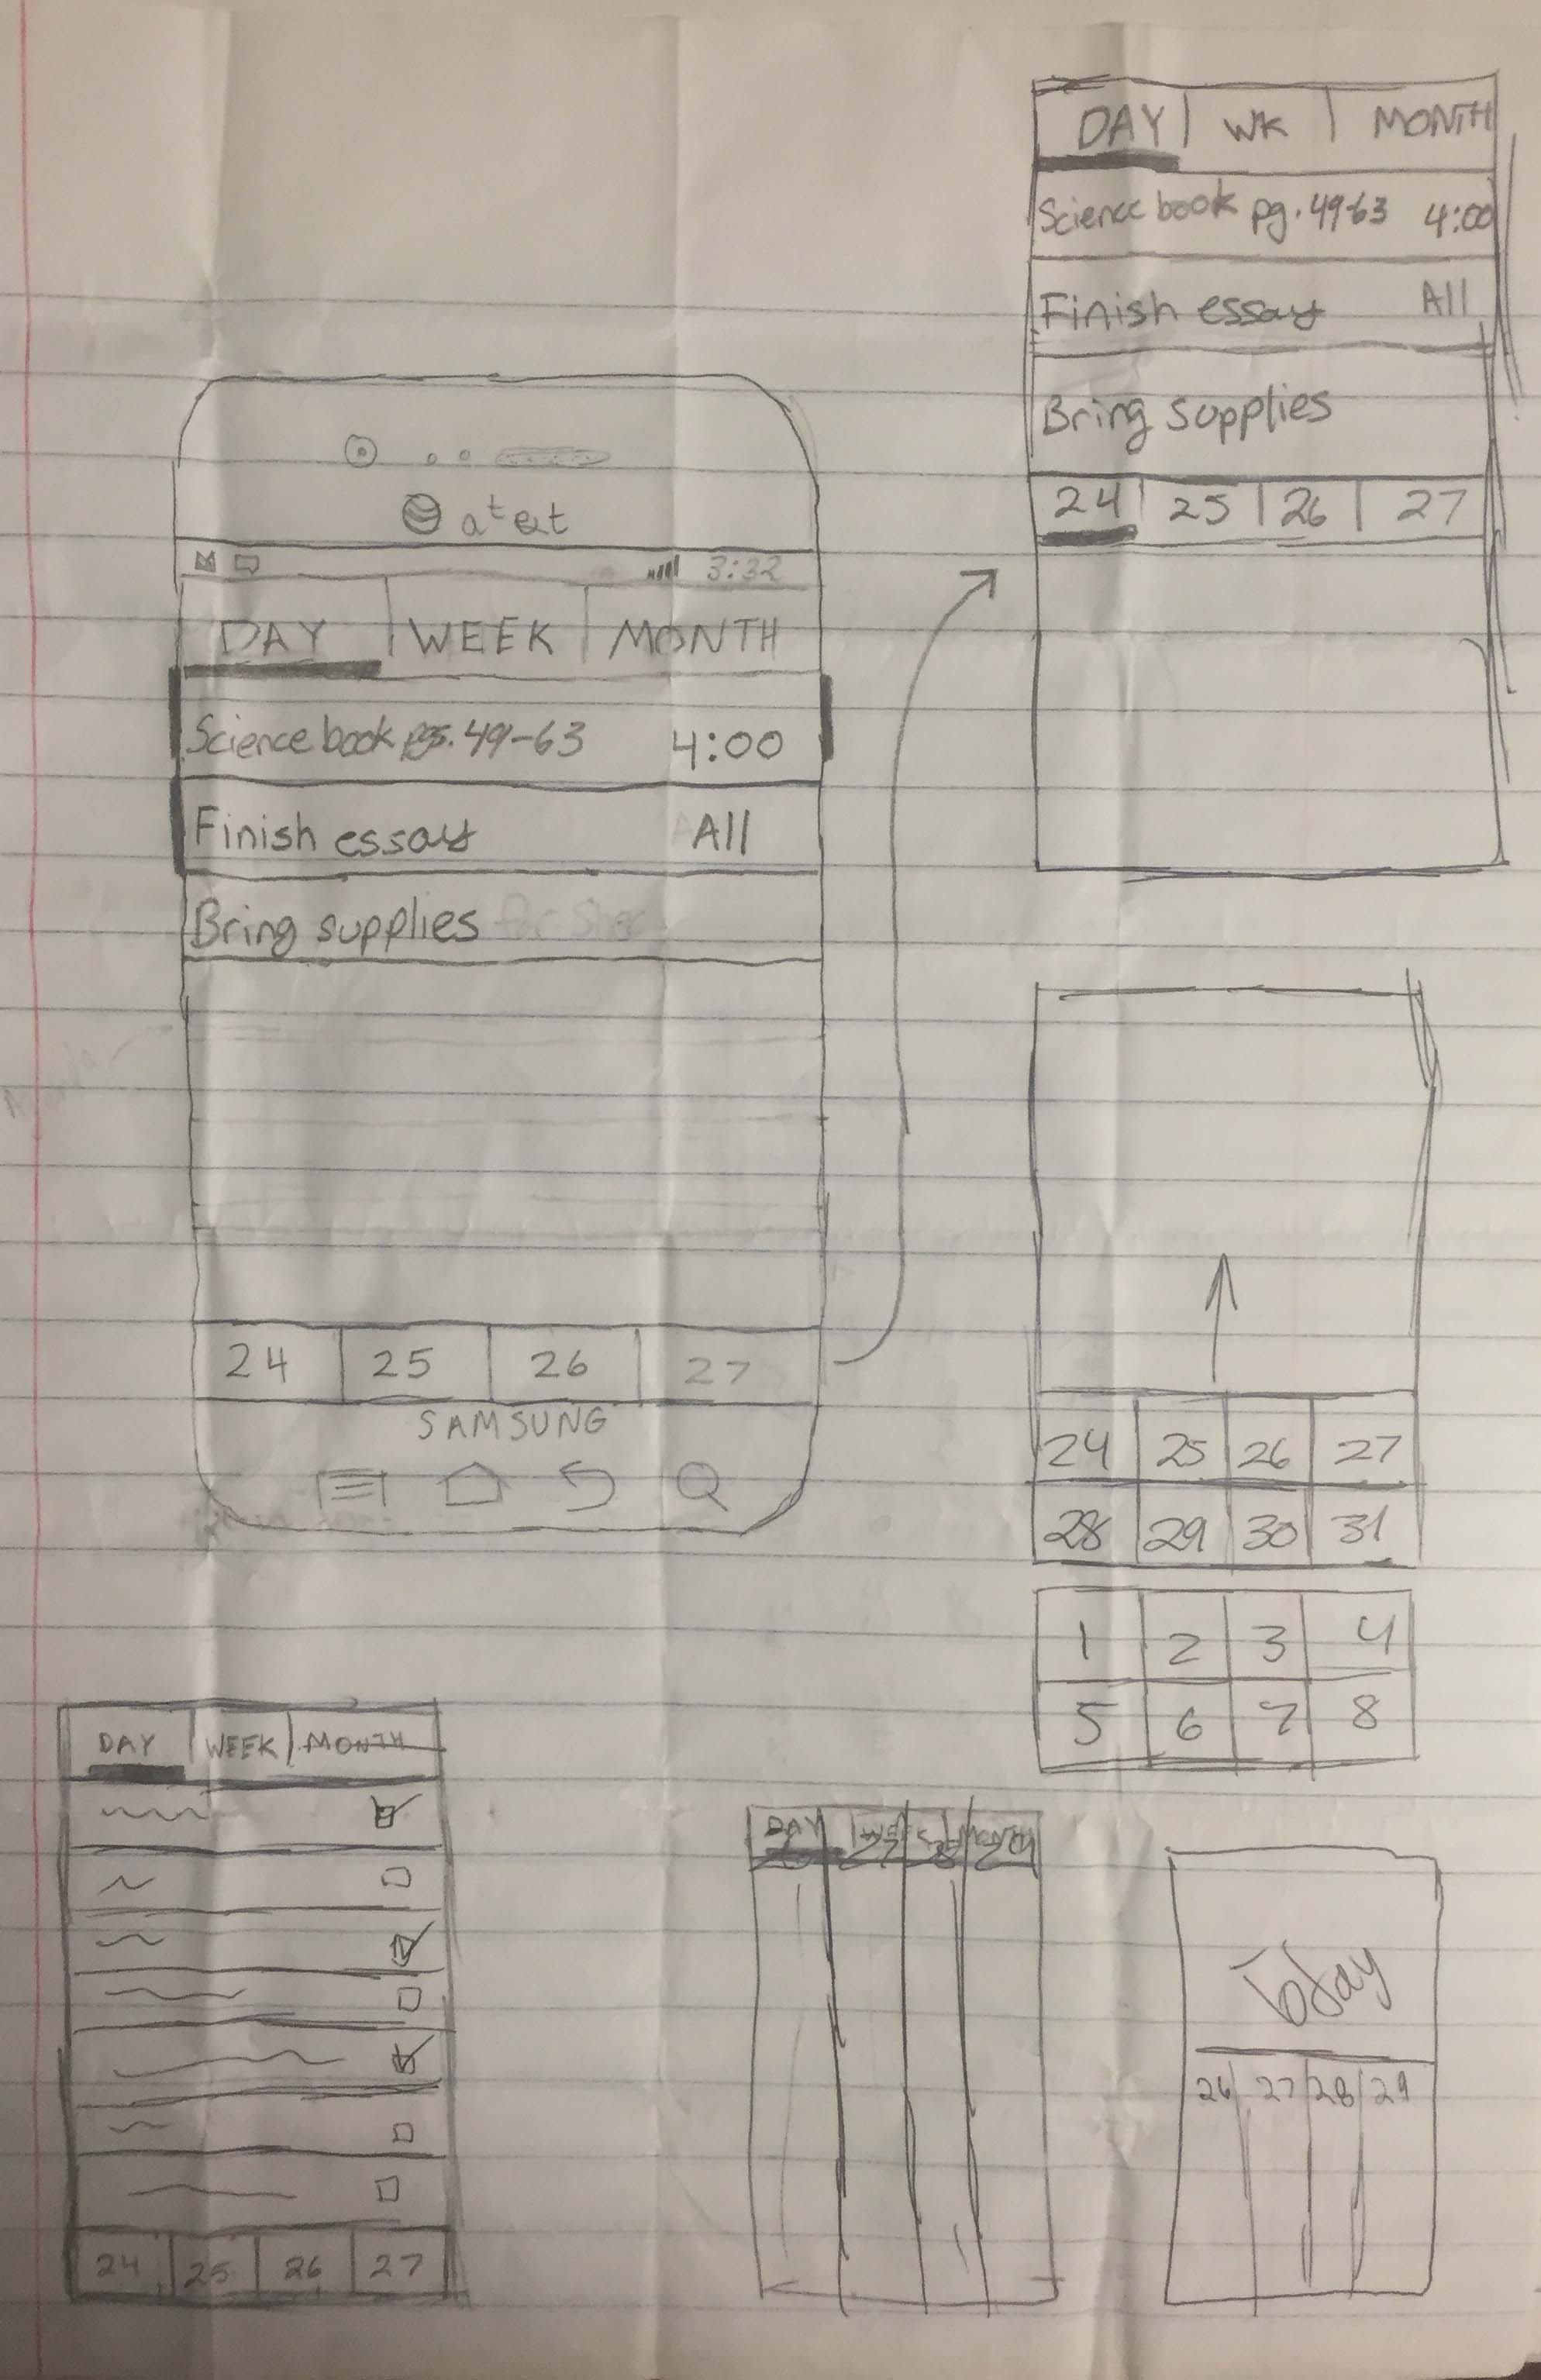 at&t
3:32
DAY WEEK MONTH
Science book pgs. 49-63 4:00
Finish essay All
Bring supplies for
24 25 26 27
SAMSUNG
DAY WK MONTH
Science book pg. 49-63 4:00
Finish essay All
Bring supplies
24 25 26 27
24 25 26 27
28 29 30 31
1 2 3 4
5 6 7 8
DAY WEEK MONTH
24 25 26 27
DAY WEEK MONTH
27 28 29
today
26 27 28 29